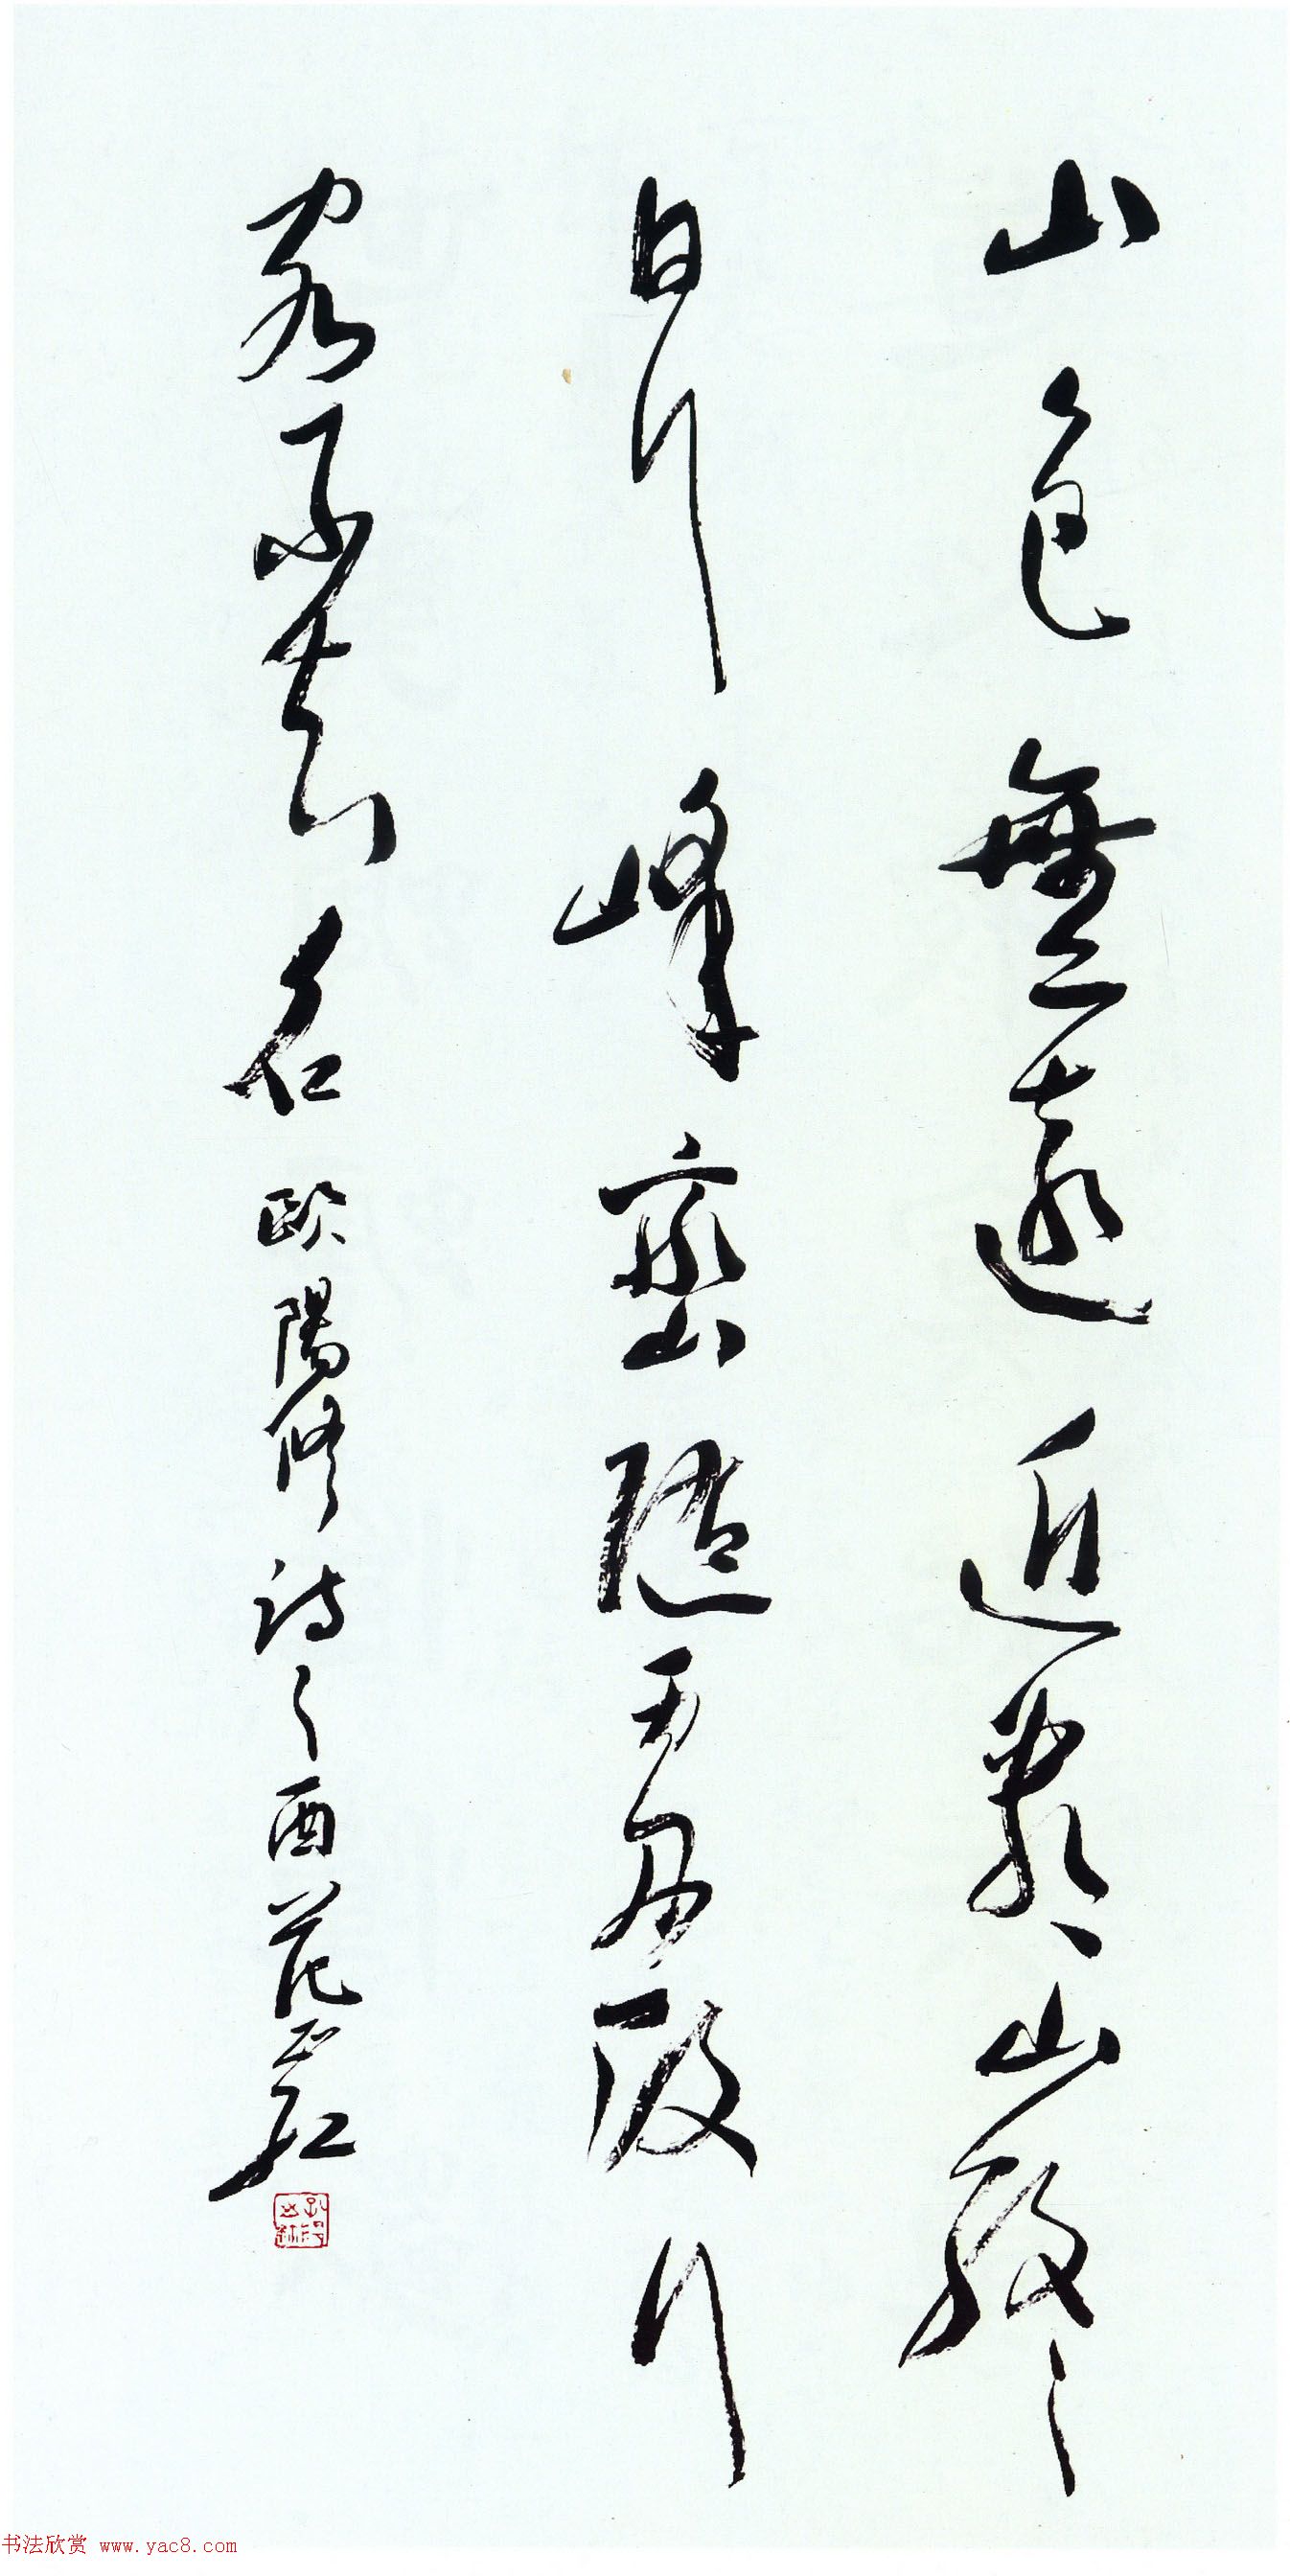 山色無遠近看山終
日行峰巒隨處改行
客不知名 歐陽修詩 乙酉
书法欣赏 www.yac8.com